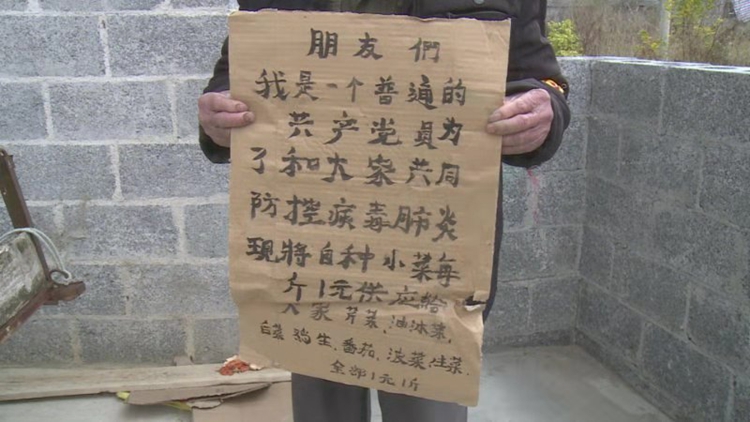 朋友們
我是一个普通的
共产党員为
了和大家共同
防控病毒肺炎
現將自种小菜每
斤1元供应給
大家 芹菜、油沐菜、
白菜 生、番茄、波菜、生菜.
全部1元1斤